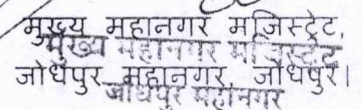 मुख्य महानगर मजिस्ट्रेट,
मुख्य महानगर मजिस्ट्रेट
जोधपुर महानगर, जोधपुर।
जोधपुर महानगर